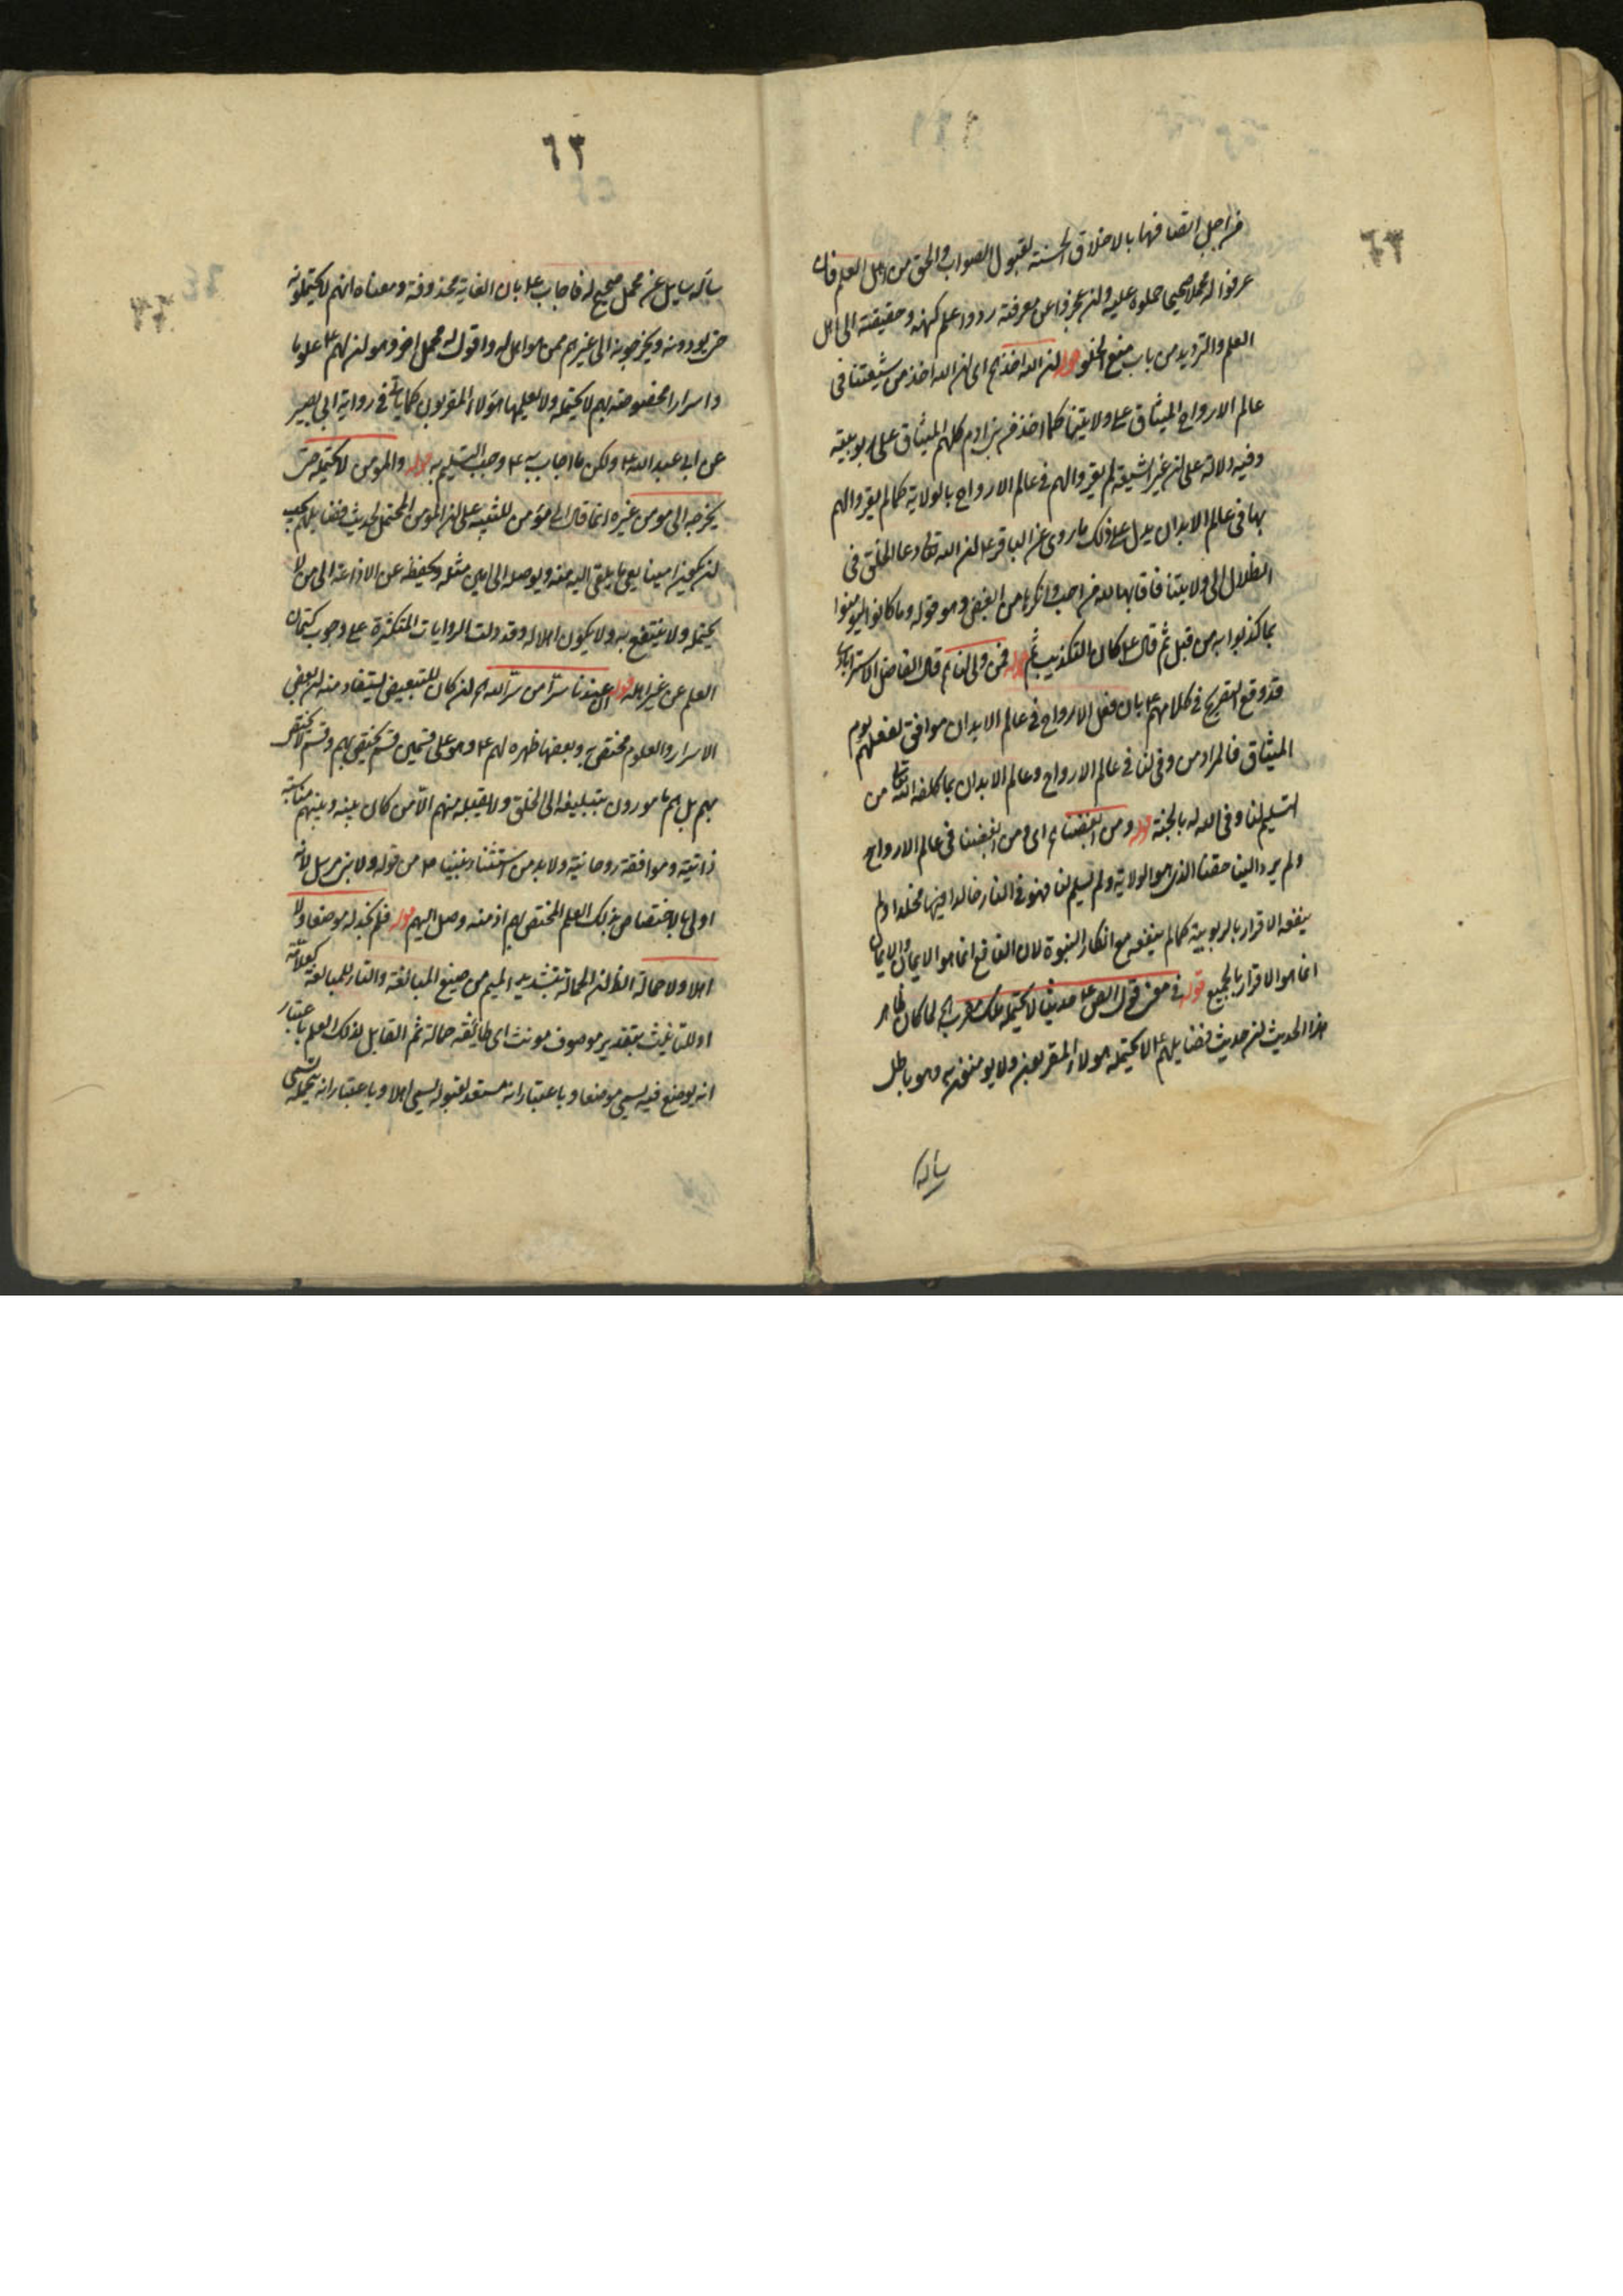 من اجل اتصافها بالاخلاق الحسنة لقبول الصواب والحق من اهل العلم فان
عرفوا له محملا صحيحا حملوه عليه ولن عجزوا عن معرفته ردوا علم كنهه وحقيقته الى اهل
العلم والترديد من باب منع الخلو قوله لن الله اخذ اى لن الله اخذ من شيعتنا فى
عالم الارواح الميثاق على ولايتنا كما اخذ من بنى ادم كلهم الميثاق على ربوبيته
وفيه دلالة على لن غير الشيعة لم يقروا لهم فى عالم الارواح بالولاية كما لم يقروا لهم
بها فى عالم الابدان يدل على ذلك ما روى عن الباقر ع لن الله تعالى دعا الخلق فى
الظلال الى ولايتنا فاقر بها لله من احب وانكرها من ابغض وهو قوله وما كانوا ليومنوا
بما كذبوا به من قبل ثم قال ع كان التكذيب ثم قوله فمن وفى لنا قال الفاضل الاسترابادى
قد وقع التصريح فى كلامهم ع بان فعل الارواح فى عالم الابدان موافق لفعلهم يوم
الميثاق فالمراد من وفى لنا فى عالم الارواح وعالم الابدان بما كلفه الله تعالى من
التسليم لنا وفى الله له بالجنة قوله ومن ابغضنا اى ومن ابغضنا فى عالم الارواح
ولم يرد الينا حقنا الذى هو الولاية ولم يسلم لنا فهو فى النار خالدا فيها مخلدا ولم
ينفعه الاقرار بالربوبية كما لم ينفعه مع انكار النبوة لان النافع انما هو الايمان والايمان
انما هو الاقرار بالجميع قوله فى معنى قول الص ع حديثنا لا يحتمله ملك مقرب لما كان ظاهر
هذا الحديث لن حديث فضايلهم ع لا يحتمله هولاء المقربون ولا يومنون به وهو باطل
ساله
٦٣
ساله سايل عن محمل صحيح له فاجاب ع بان الغاية محذوفة ومعناه انهم لا يحتملونه
حتى يودونه ويخرجونه الى غيرهم ممن هو اهل له واقول له محمل اخر وهو لن لهم ع علوما
واسرارا مخصوصة بهم لا يحتمله ولا يعلمها هؤلاء المقربون كما ياتى فى رواية ابى بصير
عن ابى عبد الله ع ولكن ما اجاب به ع وجب التسليم به قوله والمومن لا يحتمله حتى
يخرجه الى مومن غيره انما قال الى مؤمن للتنبيه على لن المومن المحتمل لحديث فضايلهم يجب
لن يكون امينا يعى ما يلقى اليه منه ويوصله الى امين مثله ويحفظه عن الاذاعة الى من لا
يحتمله ولا ينتفع به ولا يكون اهلا له وقد دلت الروايات المتكثرة على وجوب كتمان
العلم عن غير اهله قوله ان عندنا سرا من سر الله لن كان للتبعيض يستفاد منه لن بعض
الاسرار والعلوم مختص به وبعضها ظهره لهم ع وهو على قسمين قسم يختص بهم وقسم لا يختص
بهم بل هم مامورون بتبليغه الى الخلق ولا يقبله منهم الا من كان بينه وبينهم مناسبة
ذاتية وموافقة روحانية ولا بد من استثناء نبينا ص من قوله ولا بنى مرسل لانه
اولى بالاختصاص بذلك العلم المختص بهم اذ منه وصل اليهم قوله فلم نجد له موضعا ولا
اهلا ولا حمالة الظ لن الحمالة بتشديد الميم من صيغ المبالغة والتاء للمبالغة كعلامة
او للتانيث بتقدير موصوف مونث اى طائفة حمالة ثم القابل لذلك العلم باعتبار
انه يوضع فيه يسمى موضعا وباعتبار انه مستعد لقبوله يسمى اهلا وباعتبار انه يحمله يسمى